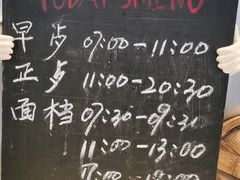 TODAY'S MENU
早步 07:00-11:00
正步 11:00-20:30
面档 07:30-09:30
11:00-13:00